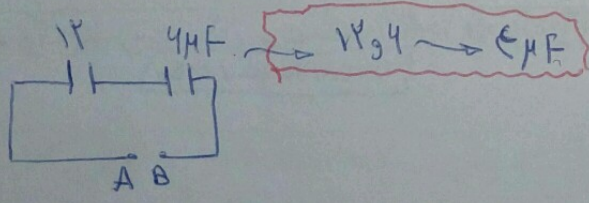 ۱۲ ۶μF → ۱۲ و ۶ → ٤μF
A B